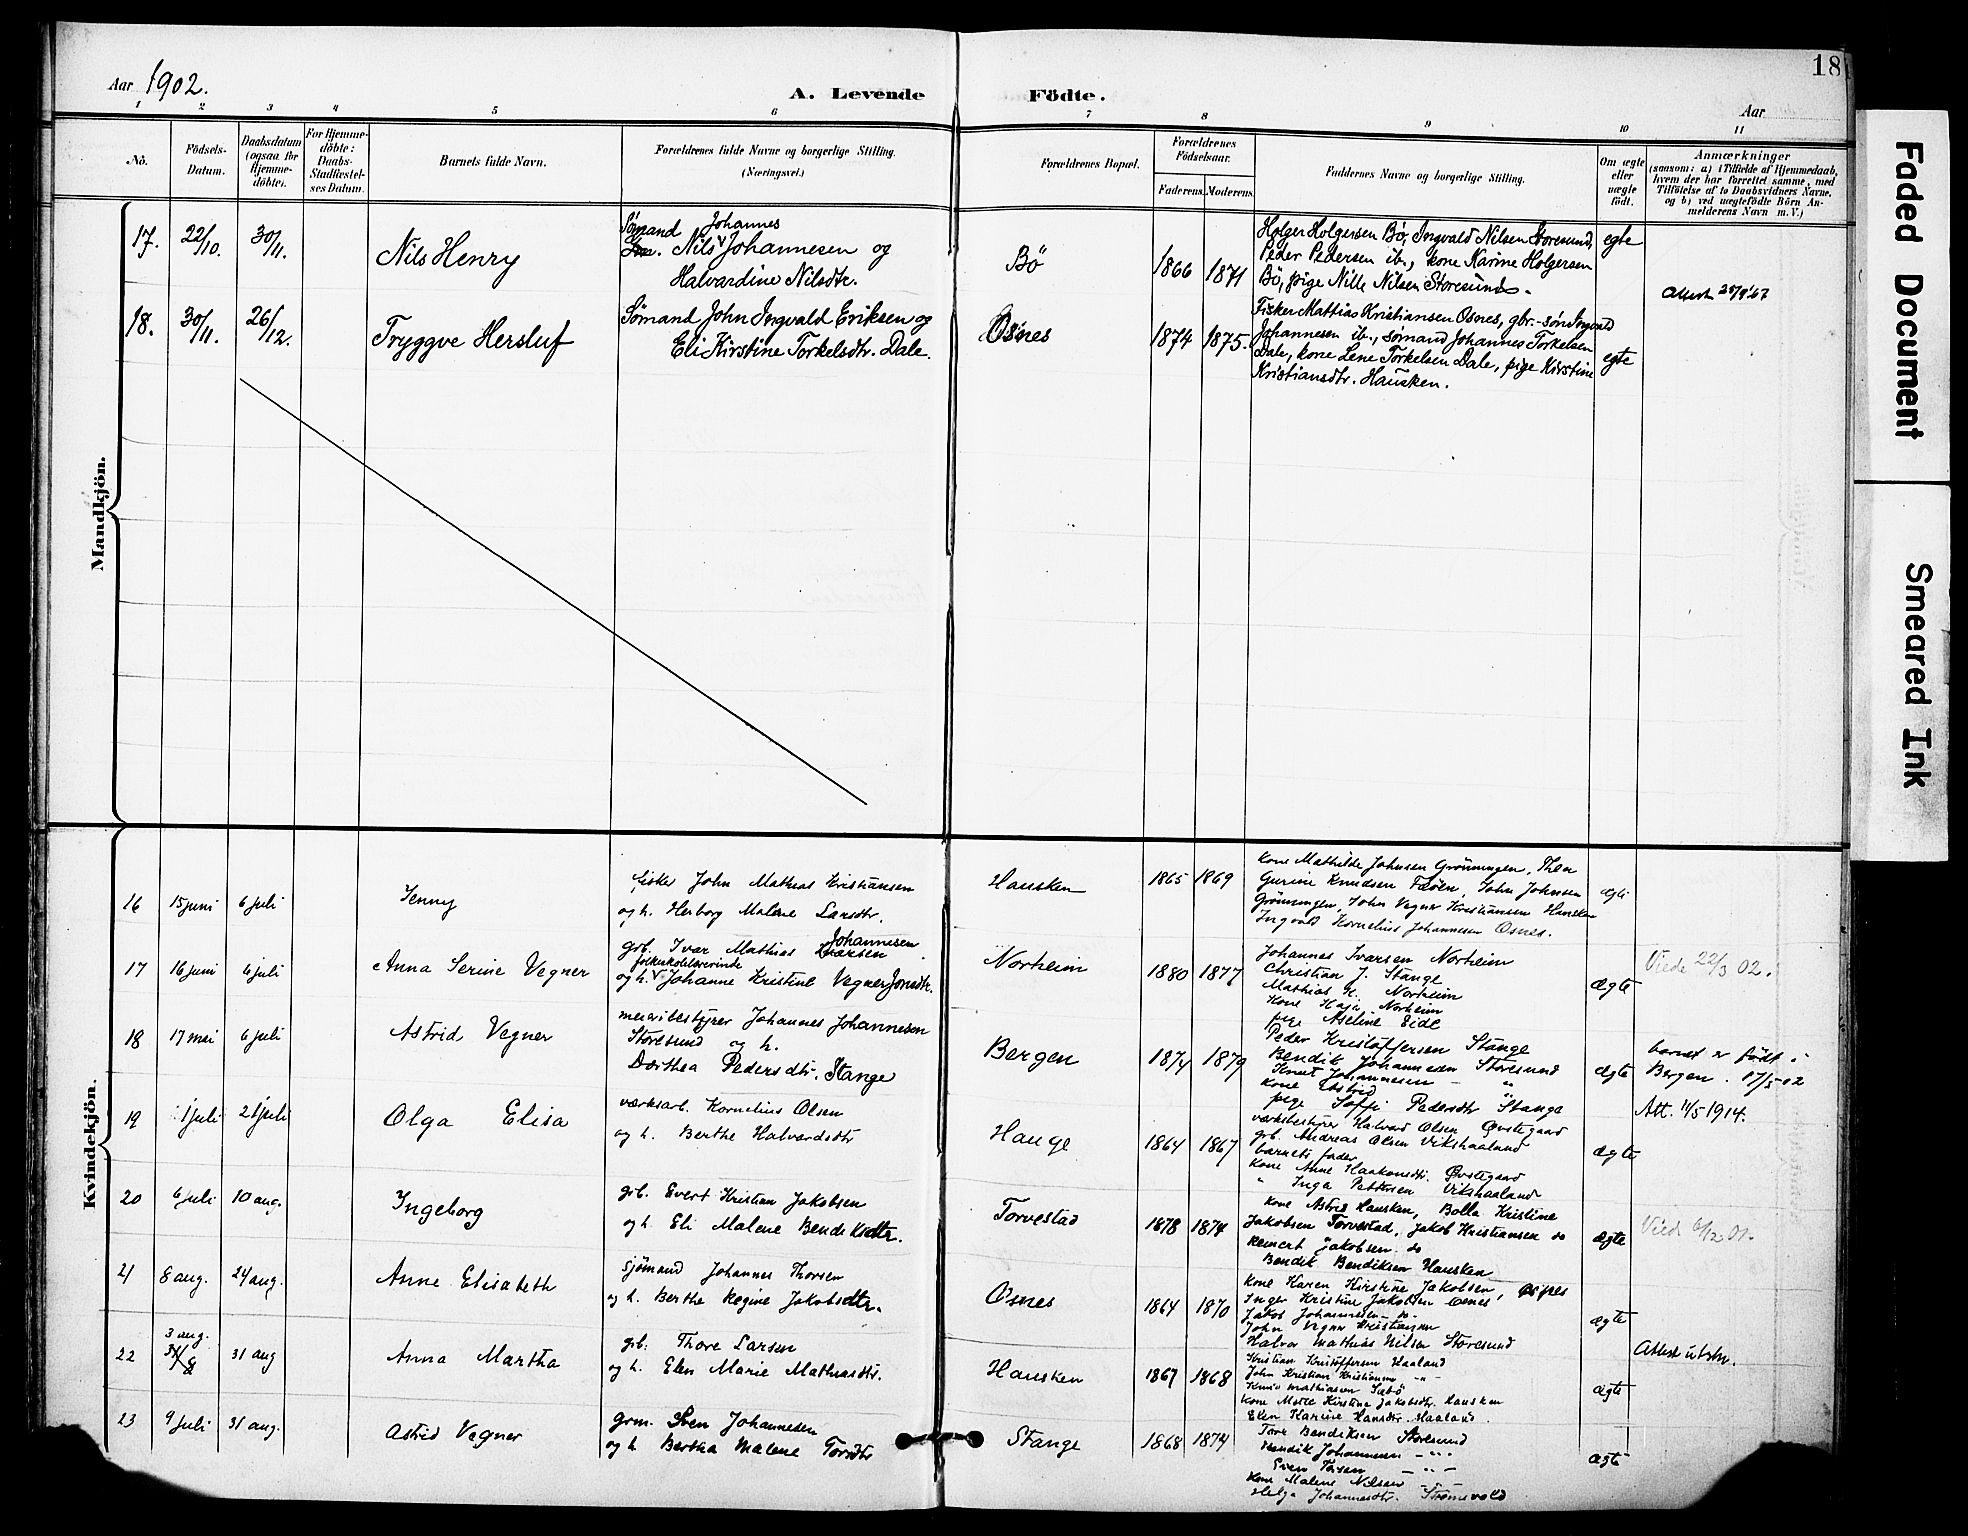 18
Aar 1902.
A. Levende Födte.
Aar
1 2 3 4 5 6 7 8 9 10 11
No.
Födsels-
Datum.
Daabsdatum
(ogsaa for
Hjemme-
döbte).
For Hjemme-
döbte:
Daabs-
Stadfæstel-
ses Datum.
Barnets fulde Navn.
Forældrenes fulde Navne og borgerlige Stilling.
(Næringsvei.)
Forældrenes Bopæl.
Forældrenes
Födselsaar.
Faderens. Moderens.
Faddernes Navne og borgerlige Stilling.
Om ægte
eller
uægte
födt.
Anmærkninger
(saasom: a) i Tilfælde af Hjemmedaab,
hvem der har forrettet samme, med
Tilföielse af to Daabsvidners Navne,
og b) ved uægtefödte Börn An-
melderens Navn m. V.)
Mandkjön.
17. 22/10. 30/11.
Nils Henry
Sømand Johannes
Nils Johannesen og
Halvardine Nilsdtr.
Bö
1866 1871
Holger Holgersen Bø, Ingvald Nilsen Storesund,
Peder Pedersen ib., kone Karine Holgersen
Bø, pige Nille Nilsen Storesund.
egte
Attest 25/9 67
18. 30/11. 26/12.
Tryggve Hersluf
Sømand John Ingvald Eriksen og
Eli Kirstine Torkelsdtr. Dale.
Osnes
1874 1875.
Fisker Mattias Kristiansen Osnes, gbr.-søn Ingvald
Johannesen ib., sømand Johannes Torkelsen
Dale, kone Lene Torkelsen Dale, pige Kirstine
Kristiansdtr. Hausken.
egte
Kvindekjön.
16 15 juni 6 juli
Jenny
fisker John Mathias Kristiansen
og h. Herborg Malene Larsdtr.
Hausken
1865 1869
kone Mathilde Johnsen Grönningen, Thea
Gurine Knudsen Faöen, John Johnsen
Grönningen, John Vegner Kristiansen Hausken
Ingvald Kornelius Johannesen Osnes.
ægte
17 16 juni 6 juli
Anna Serine Vegner
Johannesen
grb. Ivar Mathias Ivarsen
folkeskolelærerinde
og h. Johanne Kristine Vegner Jonsdtr.
Norheim
1880 1877
Johannes Ivarsen Norheim
Christian J. Stange
Mathias K. Norheim
Kone Kaja Norheim
pige Aseline Eide
ægte
Viede 22/3 02.
18 17 mai 6 juli
Astrid Vegner
meieribestyrer Johannes Johannesen
Storesund og h.
Dorthea Pedersdtr. Stange
Bergen
1874 1879
Peder Kristoffersen Stange
Bendik Johannesen Storesund
Knut Johannesen - "
kone Astrid "
pige Soffi Pedersdtr Stange
ægte
barnet er født i
Bergen. 17/5-02
Att. 11/5 1914.
19 1 juli 21 juli
Olga Elisa
værksarb. Kornelius Olsen
og h. Berthe Halvardsdtr
Hauge
1864 1867
værksbestyrer Halvard Olsen Øvstegaard
grb. Andreas Olsen Vikshaaland
barnets fader
kone Anne Haakonsdtr. Øvstegaard
" Inga Pettersen Vikshaaland
ægte
20 6 juli 10 aug.
Ingeborg
grb. Evert Kristian Jakobsen
og h. Eli Malene Bendiksdtr.
Torvestad
1878 1874
kone Astrid Hausken, Bolla Kristine
Jakobsen Torvestad, Jakob Kristiansen do
Reinert Jakobsen do
Bendik Bendiksen Hausken
ægte
Viede 6/12 01.
21 8 aug. 24 aug.
Anne Elisabeth
sjømand Johannes Thorsen
og h. Berthe Regine Jakobsdtr.
Osnes
1864 1870
kone Karen Kirstine Jakobsen, Osnes
Inger Kristine Jakobsen Osnes
Jakob Johannesen - do -
John Vegner Kristiansen
Halvor Mathias Nilsen Storesund
ægte
22 3 aug. 31 aug
Anna Martha
grb. Thore Larsen
og h. Elen Marie Mathiasdtr.
Hausken
1867 1868
Kristian Kristoffersen Haaland
John Kristian Kristiansen - " -
Knud Mathiasen Sæbö
kone Mette Kirstine Jakobsdtr. Hausken
Elen Karine Hansdtr. Haaland.
ægte
Attest utstn.
23 9 juli 31 aug.
Astrid Vegner
grm. Sven Johannesen
og h. Bertha Malene Torsdtr
Stange
1868 1874
Tore Bendiksen Storesund
Bendik Johannesen - " -
Sven Torsen - " -
kone Malene Nilsen
Helga Johannesdtr. Strömsvold
ægte
Faded Document
Smeared Ink